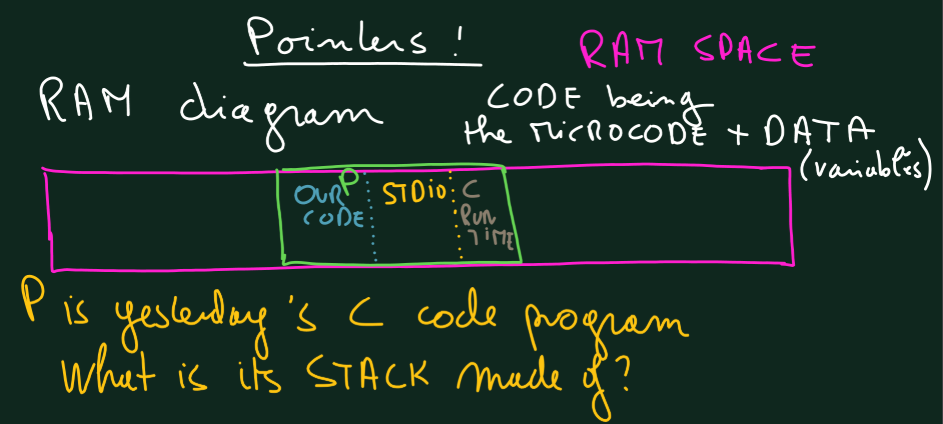 Pointers!
RAM SPACE
RAM diagram
CODE being
the MICROCODE + DATA
(variables)
P
OUR
CODE
STDIO
C
RUN
TIME
P is yesterday's C code program
What is its STACK made of?